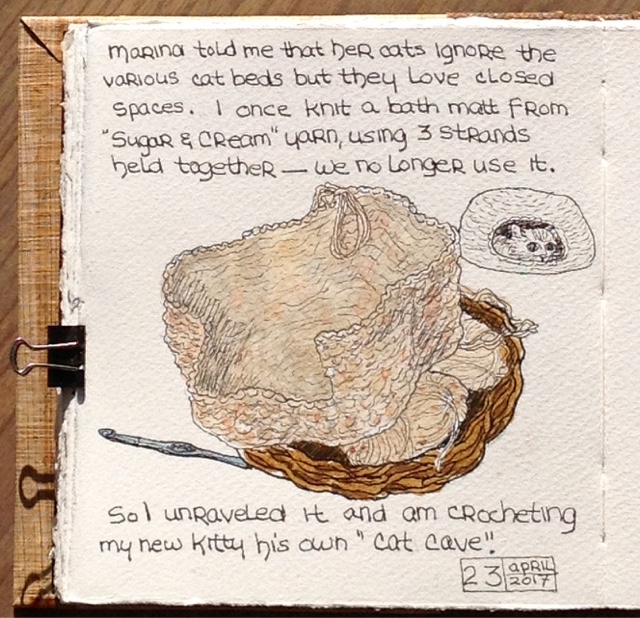 Marina told me that her cats ignore the
various cat beds but they love closed
spaces. I once knit a bath matt from
"Sugar & Cream" yarn, using 3 strands
held together — we no longer use it.
So I unraveled it and am crocheting
my new kitty his own "cat cave".
23 April
2017